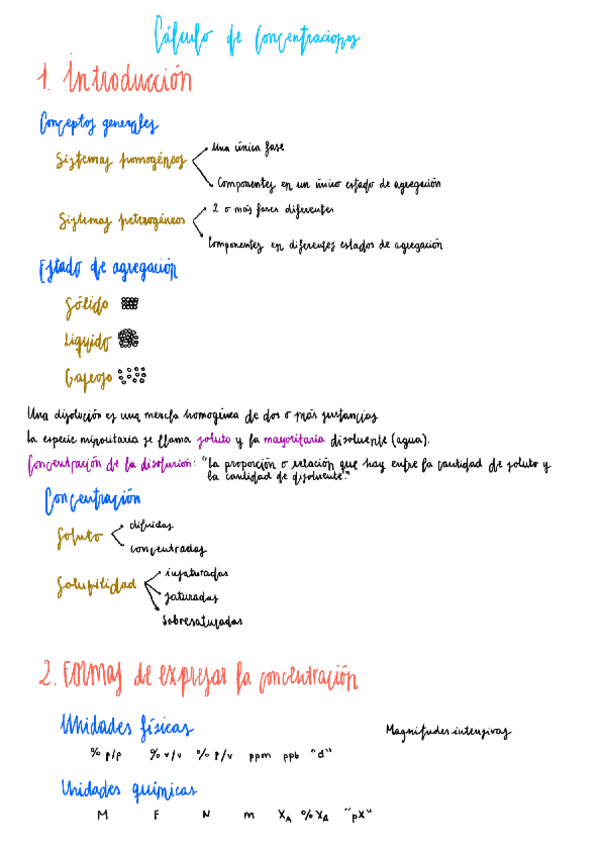 Cálculo de Concentraciones
1. Introducción
Conceptos generales
Sistemas homogéneos
Una única fase
Componentes en un único estado de agregación
Sistemas heterogéneos
2 o más fases diferentes
Componentes en diferentes estados de agregación
Estado de agregación
Sólido
Líquido
Gaseoso
Una disolución es una mezcla homogénea de dos o más sustancias
La especie minoritaria se llama soluto y la mayoritaria disolvente (agua).
Concentración de la disolución: "La proporción o relación que hay entre la cantidad de soluto y
la cantidad de disolvente."
Concentración
Soluto
diluidas
concentradas
Solubilidad
insaturadas
saturadas
Sobresaturadas
2. Formas de expresar la concentración
Unidades físicas
Magnitudes intensivas
% p/p % v/v % p/v ppm ppb "d"
Unidades químicas
M F N m XA %XA "pX"